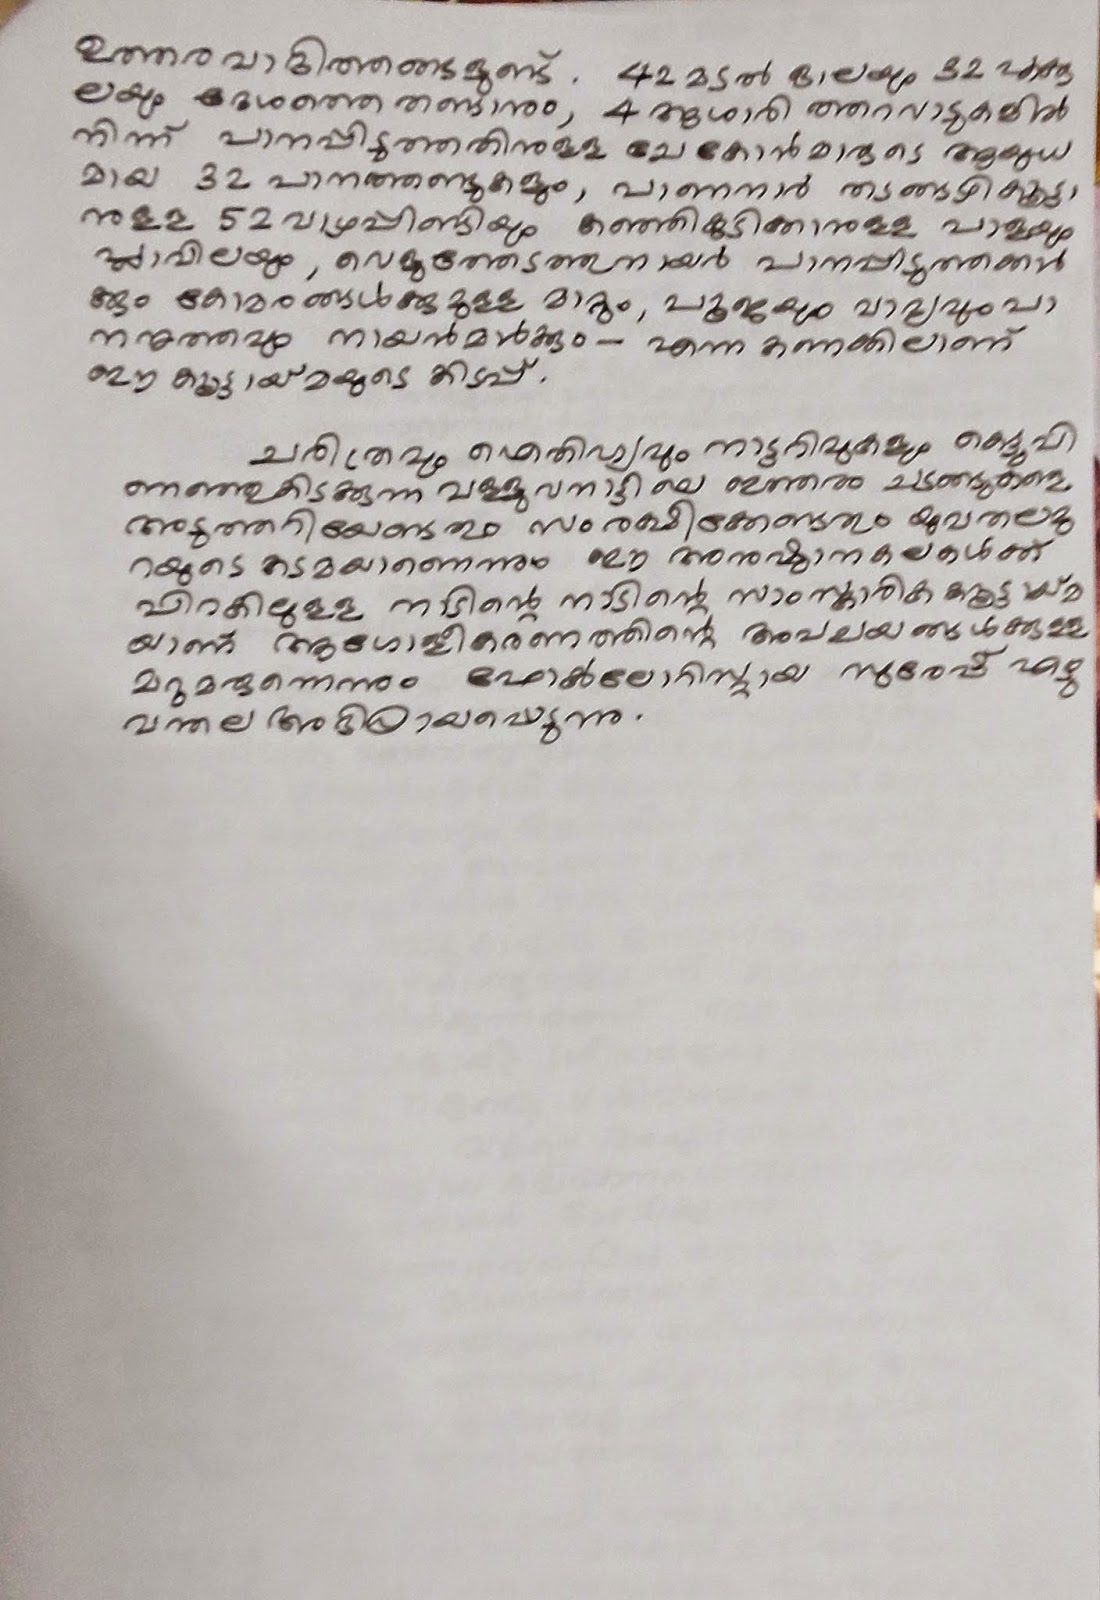 ഉത്തരവാദിത്തങ്ങളുണ്ട്. 42 മടൽ ഓലയും 32 പാള
ലയും ദേശത്തെ തണ്ടാനും, 4 ആശാരി തറവാടുകളിൽ
നിന്ന് പാനപ്പിടുത്തത്തിനുള്ള ചേകോൻമാരുടെ ആയുധ
മായ 32 പാനത്തണ്ടുകളും, പാണനാർ തടങ്ങഴികൂട്ടാ
നുള്ള 52 വാഴപ്പിണ്ടിയും കഞ്ഞികുടിക്കാനുള്ള പാളയും
പ്ലാവിലയും, വെളുത്തേടത്തുനായർ പാനപ്പിടുത്തക്കാർ
ക്കും കോമരങ്ങൾക്കുമുള്ള മാറ്റും, പൂജയും വാദ്യവും പാ
നനൃത്തവും നായൻമാർക്കും – എന്ന കണക്കിലാണ്
ഈ കൂട്ടായ്മയുടെ കിടപ്പ്.
ചരിത്രവും ഐതിഹ്യവും നാട്ടറിവുകളും കെട്ടുപി
ണഞ്ഞുകിടക്കുന്ന വള്ളുവനാട്ടിലെ ഇത്തരം ചടങ്ങുകളെ
അടുത്തറിയേണ്ടതും സംരക്ഷിക്കേണ്ടതും യുവതലമു
റയുടെ കടമയാണെന്നും ഈ അനുഷ്ഠാനകലകൾക്ക്
പിറകിലുള്ള നാടിന്റെ നാടിന്റെ സാംസ്കാരിക കൂട്ടായ്മ
യാണ് ആഗോളീകരണത്തിന്റെ അപചയങ്ങൾക്കുള്ള
മറുമരുന്നെന്നും ഫോൽലോറിസ്റ്റായ സുരേഷ് എഴു
വന്തല അഭിപ്രായപ്പെടുന്നു.